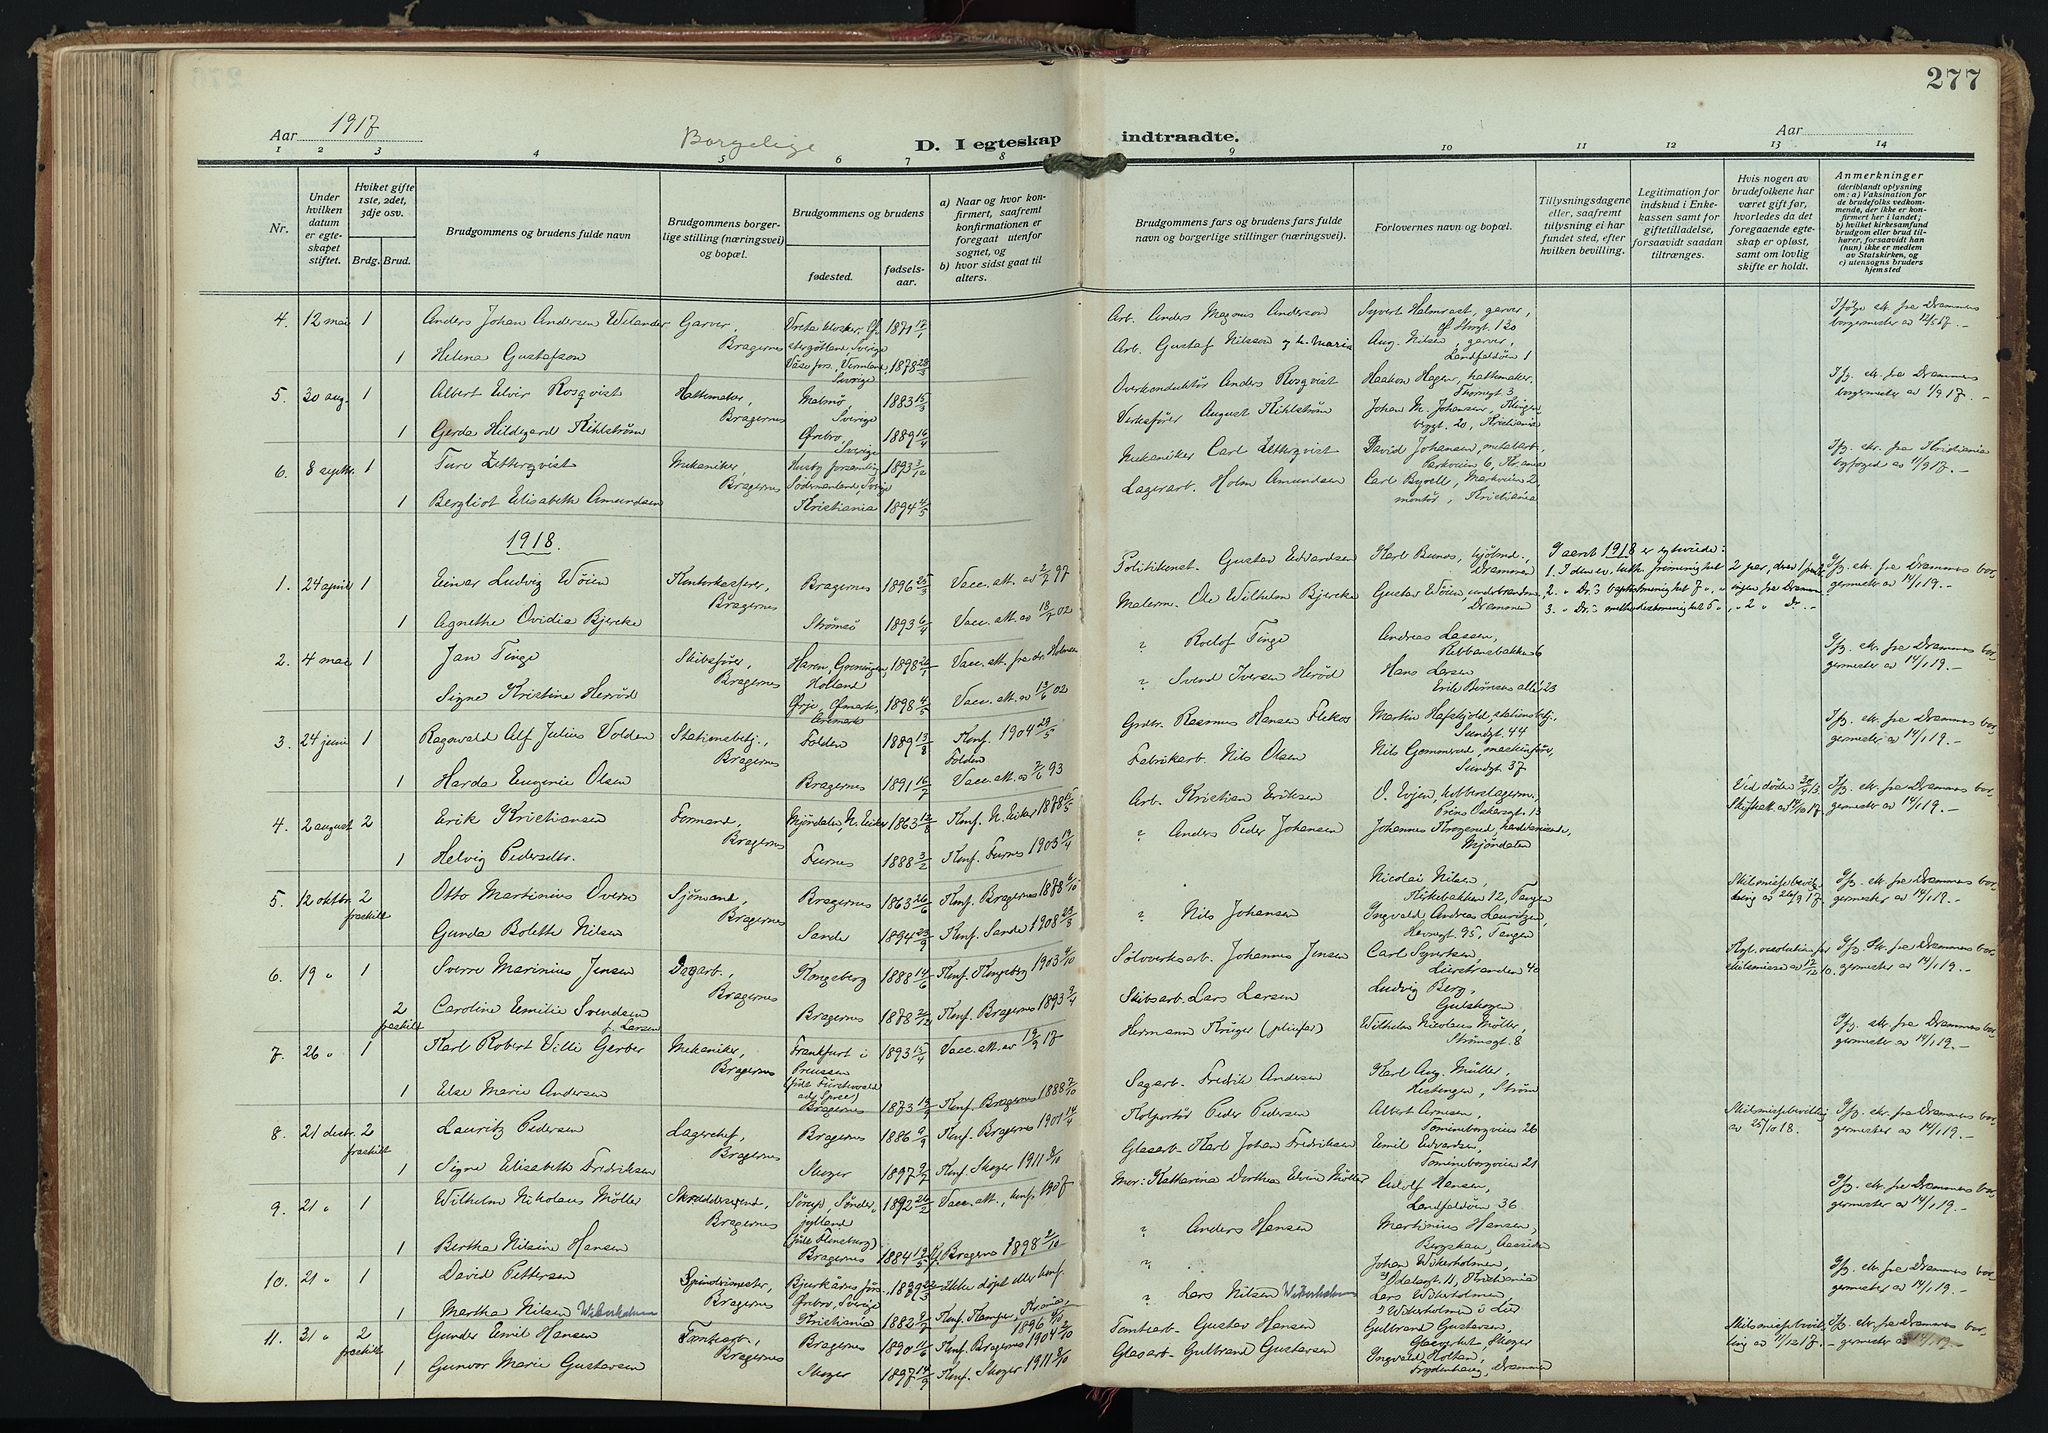 277
Aar 1917
Borgelige
D. I egteskap indtraadte.
Aar
1 2 3 4 5 6 7 8 9 10 11 12 13 14
Nr.
Under hvilken datum er egteskapet stiftet.
Hviket gifte 1ste, 2det, 3dje osv.
Brdg. Brud.
Brudgommens og brudens fulde navn
Brudgommens borgerlige stilling (næringsvei) og bopæl.
Brudgommens og brudens
fødested.
fødselsaar.
a) Naar og hvor konfirmert, saafremt konfirmationen er foregaat utenfor sognet, og
b) hvor sidst gaat til alters.
Brudgommens fars og brudens fars fulde navn og borgerlige stillinger (næringsvei).
Forlovernes navn og bopæl.
Tillysningsdagene eller, saafremt tillysning ei har fundet sted, efter hvilken bevilling.
Legitimation for indskud i Enkekassen samt for giftetilladelse, forsaavidt saadan tiltrænges.
Hvis nogen av brudefolkene har været gift før, hvorledes da det foregaaende egteskap er opløst, samt om lovlig skifte er holdt.
Anmerkninger
(deriblandt oplysning om: a) Vaksination for de brudefolks vedkommende, der ikke er konfirmert her i landet; b) hvilket kirkesamfund brudgom eller brud tilhører, forsaavidt han (hun) ikke er medlem av Statskirken, og c) utensogns bruders hjemsted
4. 12 mai 1 Anders Johan Andersen Welander Garver, Bragernes Vreta kloster, Østergøtland, Sverige 1871 17/1 Arb. Anders Magnus Anderson Syvert Halmrast, garver, Ø. Storgt. 120 Ifølge ek. fra Drammens borgermester av 12/5 17.-
1 Helena Gustafson Väse fors., Vermland, Sverige 1878 28/3 Arb. Gustaf Nilsson og h. Maria Aug. Nilsen, garver, Landfaldøen 1
5. 30 aug. 1 Albert Elvir Rosqvist Hattemaker, Bragernes Malmø, Sverige 1883 15/3 Overkonduktør Anders Rosqvist Haakon Hagen, hattemaker, Thornegt 3 Ifg. ek. fra Drammens borgermester av 1/9 17.-
1 Gerda Hildegard Kihlstrøm Ørebro, Sverige 1889 16/4 Verksfører August Kihlstrøm Johan M. Johansen, Klingenberggt. 20, Kristiania
6. 8 septbr. 1 Ture Zitterqvist Mekaniker, Bragernes Husby forsamling, Södermanland, Sverige 1893 3/12 Mekaniker Carl Zitterqvist David Johansen, metalarb., Parkveien 6, Kr.ania Ifg. ekr. fra Kristiania byfoged av 11/9 17.-
1 Bergliot Elisabeth Amundsen Kristiania 1894 4/5 Lagerarb. Holm Amundsen Carl Byvell, Markveien 2, montør, Kristiania
1918.
1. 24 april 1 Einar Ludvig Wöien Kontorkasserer, Bragernes Bragernes 1896 25/3 Vacc. att. av 2/7 97 Politibetient. Gustav Edvardsen Karl Bunes, hjølmd., Drammen
I aaret 1918 er egtviede:
1. I den ev. luth. frimenighet 2 par, derav 1 par
2. " Dr.s baptistmenighet 7 " , ingen fra Drammen
3. " Dr.s methodistmenighet 5 " , 2 " Dr.-
Ifg. ek. fra Drammens borgermester av 14/1 19.-
1 Agnethe Ovidia Bjercke Strømsö 1893 6/4 Vacc. att. av 18/7 02 Malerm. Ole Wilhelm Bjercke Gustav Wöien, Drammen
2. 4 mai 1 Jan Tinge Skibsfører, Bragernes Haren, Groningen, Holland 1898 26/7 Vacc. att. fra dr. Holmsen " Roelof Tinge Andreas Lassen, Rebbanebakken 6 Ifg. ek. fra Drammens borgermester av 14/1 19.-
Signe Kristine Herröd Ørje, Øymark, Aremark 1898 4/5 Vacc. att. av 13/6 02 " Svend Iversen Heröd Hans Larsen Erik Börresens allé 23
3. 24 juni 1 Ragnvald Alf Julius Volden Stationsbetj., Bragernes Folden 1889 13/8 Konf. 1904 29/5 Folden Grdbr. Rasmus Hansen Flekos Martin Hafskjold, stationsbetj., Sundgt 44 Ifg. ek. fra Drammens borgermester av 14/1 19.-
1 Harda Eugenie Olsen Bragernes 1891 16/7 Vacc. att. av 2/6 93 Fabrikarb. Nils Olsen Nils Gomonrud, maskinfører, Sundgt 37
4. 2 august 2 Erik Kristiansen Formand, Bragernes Mjøndalen, N. Eiker 1863 12/8 Konf. N. Eiker 1878 15/5 Arb. Kristian Eriksen O. Evjen, kobberslagerm., Prins Oskarsgt. 13 Ved døden 20/4 13. Skifteatt. av 12/10 17. Ifg. ek. fra Drammens borgermester av 14/1 19.-
1 Helvig Pedersdtr. Furnes 1888 3/2 Konf. Furnes 1903 19/4 " Anders Peder Johansen Johannes Krogerud, handelsreisende, Mjøndalen
5. 12 oktbr. 2 fraskilt Otto Martinius Overn Sjömand, Bragernes Bragernes 1863 26/6 Konf. Bragernes 1878 6/10 Nicolai Nilsen, Kirkebakken 12, Tangen Skilsmissebevilling av 26/9 17. Ifg. ek. fra Drammens borgermester av 14/1 19.-
Gunda Bolette Nilsen Sande 1894 23/9 Konf. Sande 1908 20/3 " Nils Johansen Ingvald Andreas Lauritzen, Havnegt 95, Tangen
6. 19 " 1 Sverre Marinius Jensen Dagarb., Bragernes Kongsberg 1888 14/6 Konf. Kongsberg 1903 4/10 Sölvverksarb. Johannes Jensen Carl Syvertsen, Lierstranden 40 Kgl. resolution for skilsmisse av 12/12 10. Ifg. ek. fra Drammens borgermester av 14/1 19.-
2 fraskilt Caroline Emilie Svendsen f. Larsen Bragernes 1878 2/12 Konf. Bragernes 1893 9/4 Skibsarb. Lars Larsen Ludvig Berg, Gulskogen
7. 26 " 1 Karl Robert Villi Gerber Mekaniker, Bragernes Frankfurt i Preussen (føde Fürstenwald a/d Spree) 1893 15/4 Vacc. att. av 19/9 17 Hermann Krüger (pleiefar) Wilhelm Nicolaus Møller, Strømsgt. 8 Ifg. ekr. fra Drammens borgermester av 14/1 19.-
1 Else Marie Andersen Bragernes 1873 19/9 Konf. Bragernes 1888 7/10 Sagarb. Fredrik Andersen Karl Aug. Müller, Hestengen, Strøm
8. 21 decbr. 2 fraskilt Lauritz Pedersen Lagerchef, Bragernes Bragernes 1886 9/9 Konf. Bragernes 1901 14/4 Kolportør Peder Pedersen Albert Arnesen, Tomineborgveien 26 Skilsmissebevilling av 25/10 18. Ifg. ek. fra Drammens borgermester av 14/1 19.-
1 Signe Elisabeth Fredriksen Skoger 1897 9/7 Konf. Skoger 1911 8/10 Glasarb. Karl Johan Fredriksen Emil Edvardsen, Tomineborgveien 21
9. 21 " 1 Wilhelm Nikolaus Møller Skræddersvend, Bragernes Sörup, Sönderjylland (føde Flensburg) 1892 26/2 Vacc. att., konf. 1907 Mor: Katharina Dorthea Elvine Møller Adolf Hansen, Landfaldöen 36 Ifg. ek. fra Drammens borgermester av 14/1 19.-
1 Bertha Nilsine Hansen Bragernes 1884 19/5 Kf. Bragernes 1898 2/10 " Anders Hansen Martinius Hansen, Bergskau, Aassiden
10. 21 " 1 David Pettersen Spindemester, Bragernes Bjurkärns förs. Ørebro, Sverige 1889 23/3 Ikke døpt eller konf. " Johan Wikerholmen, Odalsgt. 11, Kristiania Ifg. ek. fra Drammens borgermester av 14/1 19.-
1 Martha Nilsen Wikerholmen Kristiania 1882 9/7 Konf. Kampen, Kr.ania 1896 4/10 " Lars Nilsen Wikerholmen Lars Wikerholmen, Wikerholmen i Lier
11. 31 " 2 fraskilt Gunder Emil Hansen Tomtearb., Bragernes Bragernes 1890 11/6 Konf. Bragernes 1904 2/10 Tomtearb. Gustav Hansen Gulbrand Gustavsen, Glassverket Skoger Skilsmissebevilling av 11/12 17.- Ifg. ek. fra Drammens borgermester av 14/1 19.-
1 Gunvor Marie Gustavsen Skoger 1897 14/9 Konf. Skoger 1911 8/10 Glasarb. Gulbrand Gustavsen Ingvald Holtan, Frydenhaug, Drammen